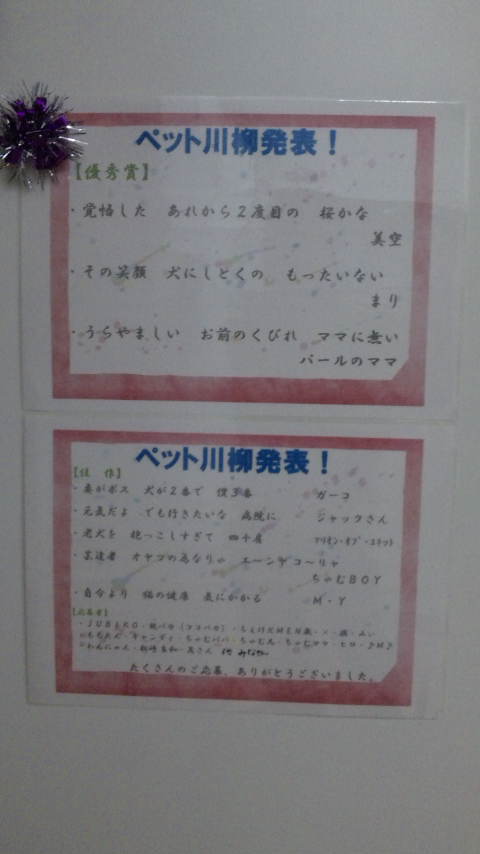 ペット川柳発表！
【優秀賞】
・覚悟した　あれから２度目の　桜かな
美空
・その笑顔　犬にしとくの　もったいない
まり
・うらやましい　お前のくびれ　ママに無い
パールのママ
ペット川柳発表！
【佳　作】
・妻がボス　犬が２番で　僕３番　ガーコ
・元気だよ　でも行きたいな　病院に　ジャックさん
・老犬を　抱っこしすぎて　四十肩　マリオン・オブ・エネット
・芸達者　オヤツの為なりゃ　エーンヤコ～リャ
ちゃむＢＯＹ
・自分より　猫の健康　気にかかる　Ｍ・Ｙ
【応募者】
・ＪＵＢＥＲＯ・
キャンディ・ちゃむパパ・ちゃむん・ちゃむママ・ヒロ・♪Ｍ♪
たくさんのご応募、ありがとうございました。